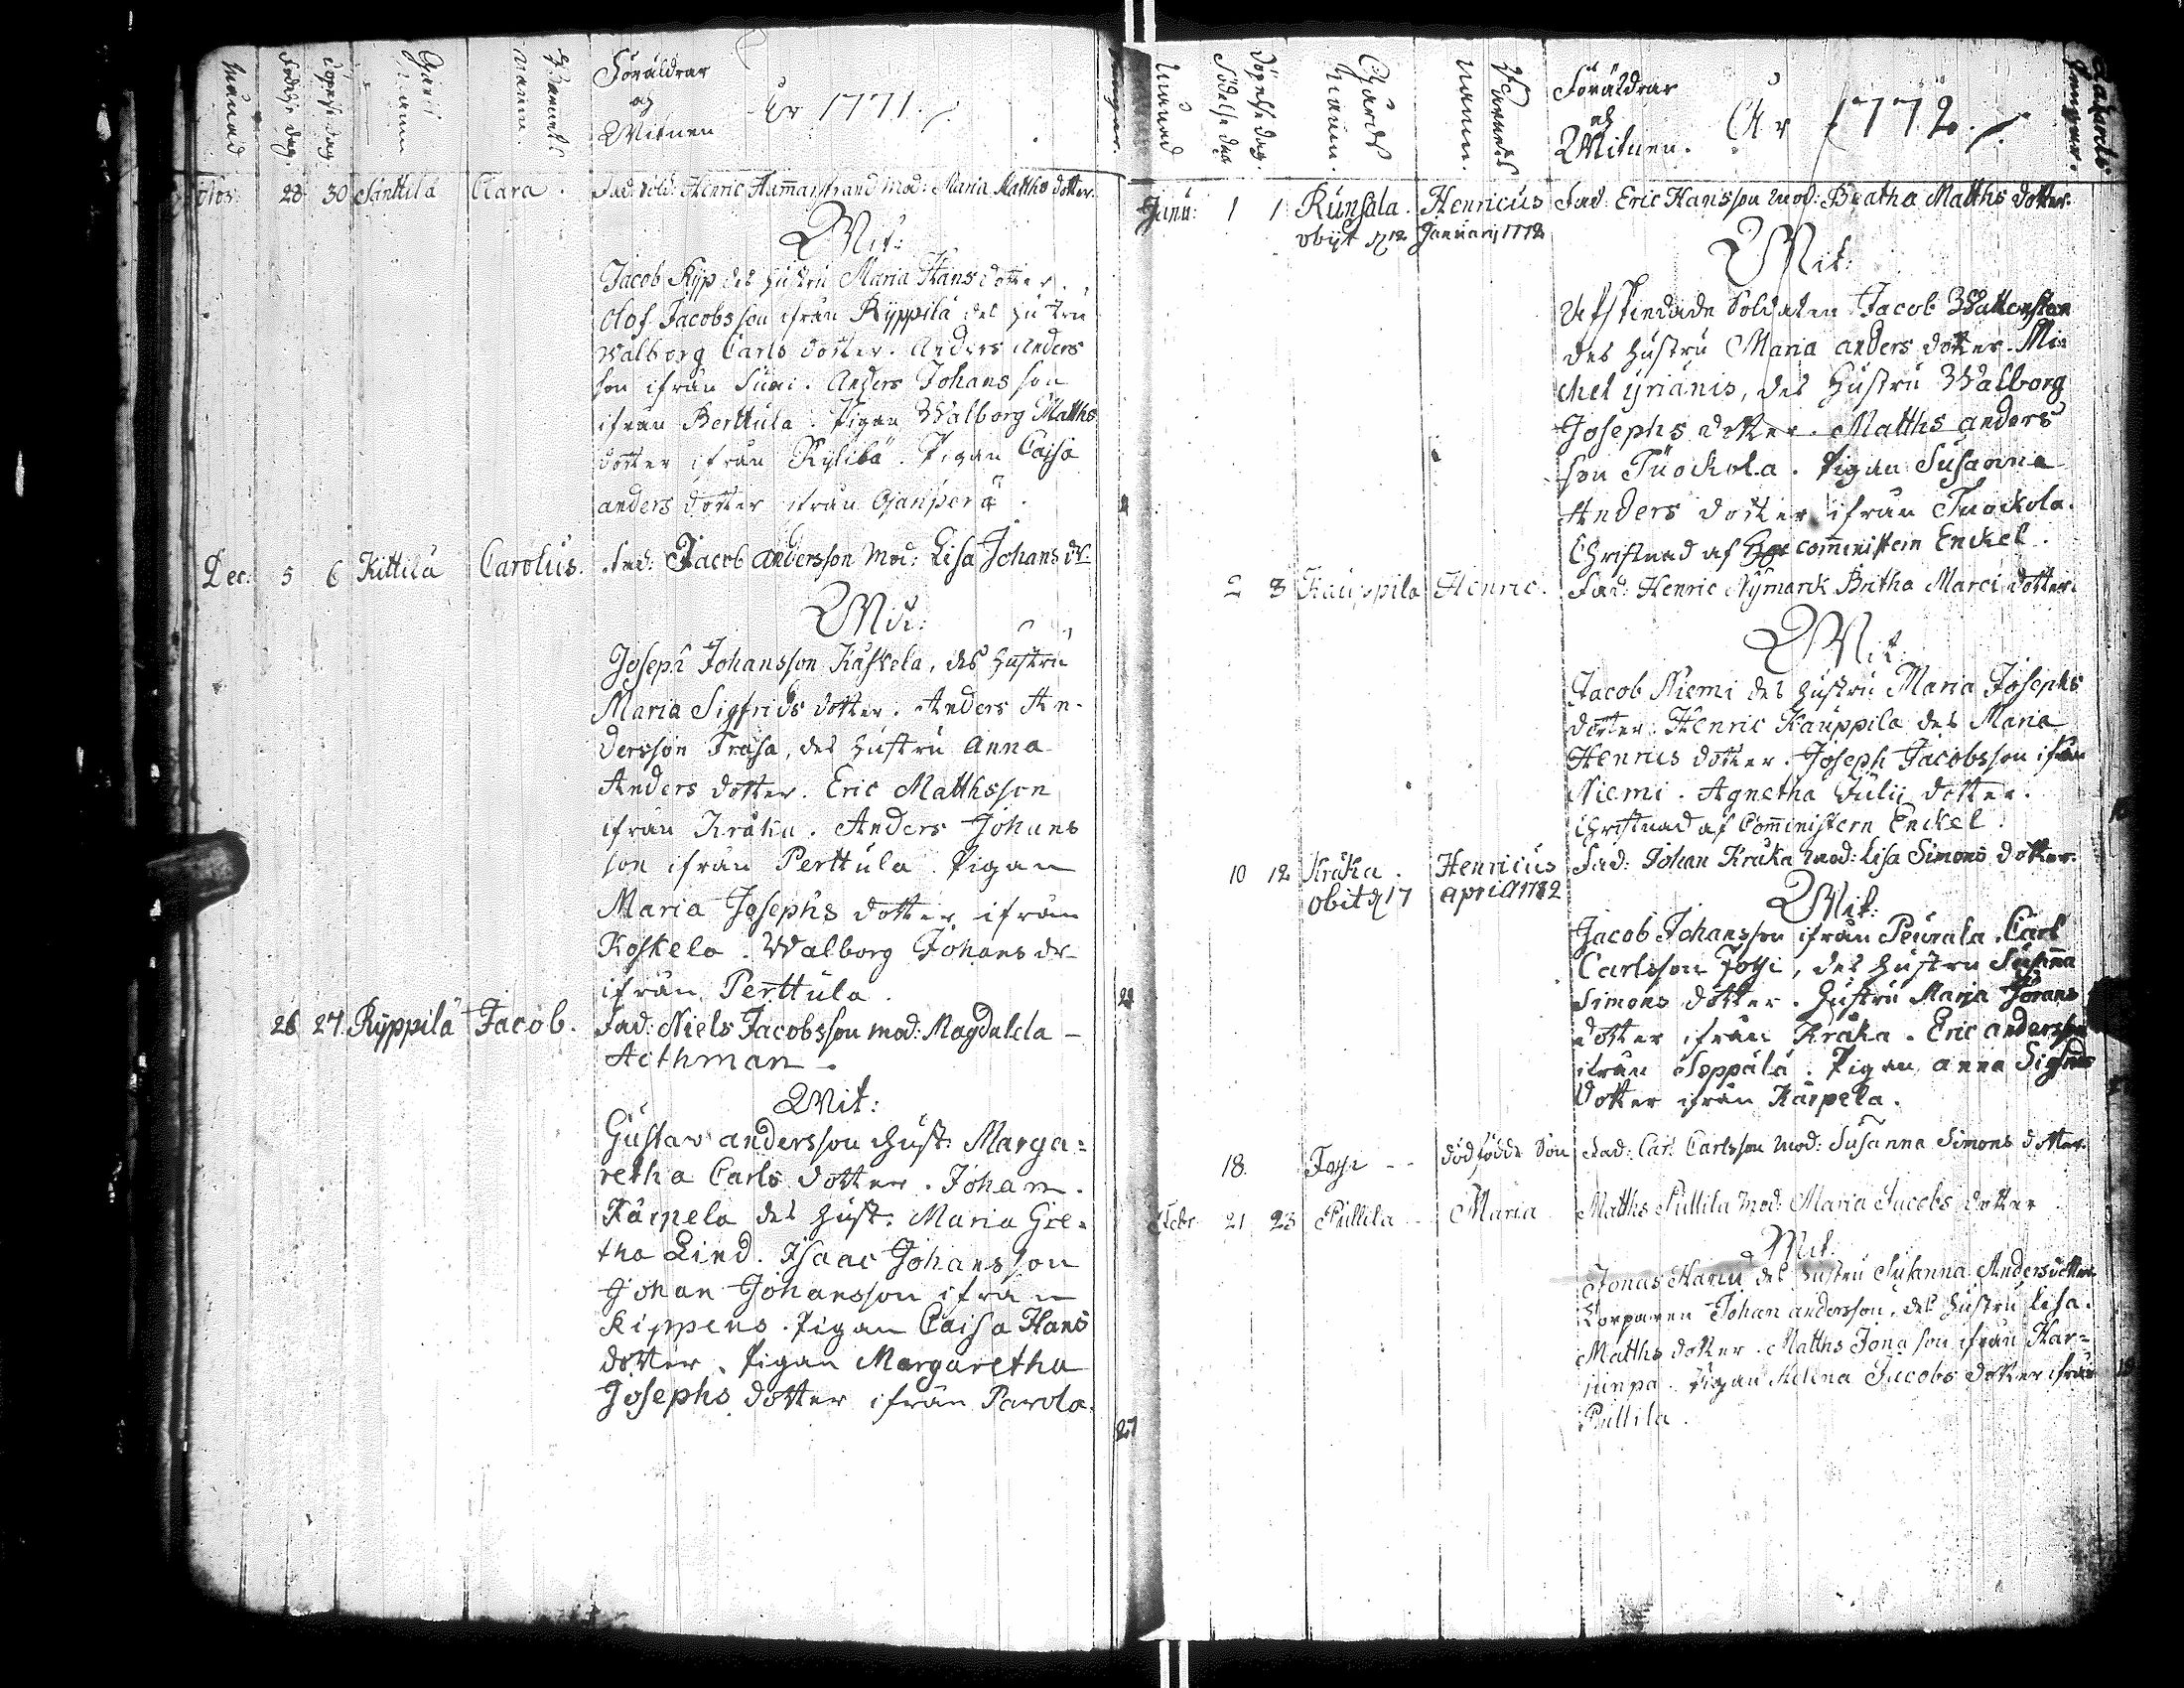 Månad
Födelse dag.
Döpelse dag
Gårds
Namn
Barnets
Namn.
Föräldrar
och
Witnen
År 1771.
28 30 Sänttilä Clara. Fad: Sold: Henric Hammarstrand Mod: Maria Matths dotter.
Wit:
Jacob Kyp des hustru Maria Hans dotter.
Olof Jacobsson ifrån Ryppilä des hustru
Walborg Carls dotter. Anders Anders
son ifrån Suni. Anders Johans son
ifrån Berttula. Pigan Walborg Matths
dotter ifrån Pigan Caisa
anders dotter ifrån Ojanperä.
Dec. 5 6 Kittilä Carolus. Fad: Jacob andersson Mod: Lisa Johans dr
Wit:
Joseph Johansson Kåskela, des hustru
Maria Sigfrids dotter. Anders An-
dersson Frasa, des hustru Anna
Anders dotter. Eric Matthsson
ifrån Kråka. Anders Johans
son ifrån Perttula. Pigan
Maria Josephs dotter ifrån
Koskela. Walborg Johans dr
ifrån Perttula.
26 27. Ryppilä Jacob. Fad: Niels Jacobsson mod: Magdalela
Aethman.
Wit:
Gustav andersson hust: Marga=
retha Carls dotter. Johan
Kärpela des hust: Maria Gre=
tha Lind. Isaac Johansson
Johan Johansson ifrån
Kippens. Pigan Caisa Hans
dotter. Pigan Margaretha
Josephs dotter ifrån Parola.
Månad
Födelse dag
Döpelse dag.
Gårds
Namn.
Barnets
Namn.
Föräldrar
och
Witnen.
År 1772.
Janu: 1 1 Runsala. Henricus Fad: Eric Hansson Mod: Beatha Matths dotter.
obijt d 12 Januarij 1772
Wit:
Afskiedade Soldaten Jacob Wattensten
des hustru Maria anders dotter. Mi=
chel yrianis, des Hustru Walborg
Josephs dotter. Matths anders
son Tuockola. Pigan Susanna
Anders dotter ifrån Tuockola.
Christnad af comministern Enckel.
2 3 Kauppila Henric. Fad: Henric Nymarck Britha Marci dotter.
Wit
Jacob Niemi des hustru Maria Josephs
dotter. Henric Kauppila des Maria
Henrics dotter. Joseph Jacobsson ifrån
Niemi. Agnetha Julii dotter.
Christnad af Comministern Enckel.
10 12 Kråka. Henricus Fad: Johan Kråka mod: Lisa Simons dotter.
obit d 17 april 1782
Wit:
Jacob Johansson ifrån Peurala. Carl
Carlsson Foyi, des hustru Susanna
Simons dotter. Hustru Maria Jörans
dotter ifrån Kråka. Eric andersson
ifrån Seppälä. Pigan anna Sigfrids
dotter ifrån Kärpela.
18. Foyi -- dödfödde Son Fad: Carl Carlsson Mod: Susanna Simons dotter.
Febr 21 23 Pullila Maria Matths Pullila mod: Maria Jacobs dotter
Wit.
Jonas Harju des hustru Susanna Andersdotter
Torparen Johan andersson, des hustru Lisa
Matths dotter. Matths Jonasson ifrån Har=
junpä. Pigan Helena Jacobs dotter ifrån
Pullila.